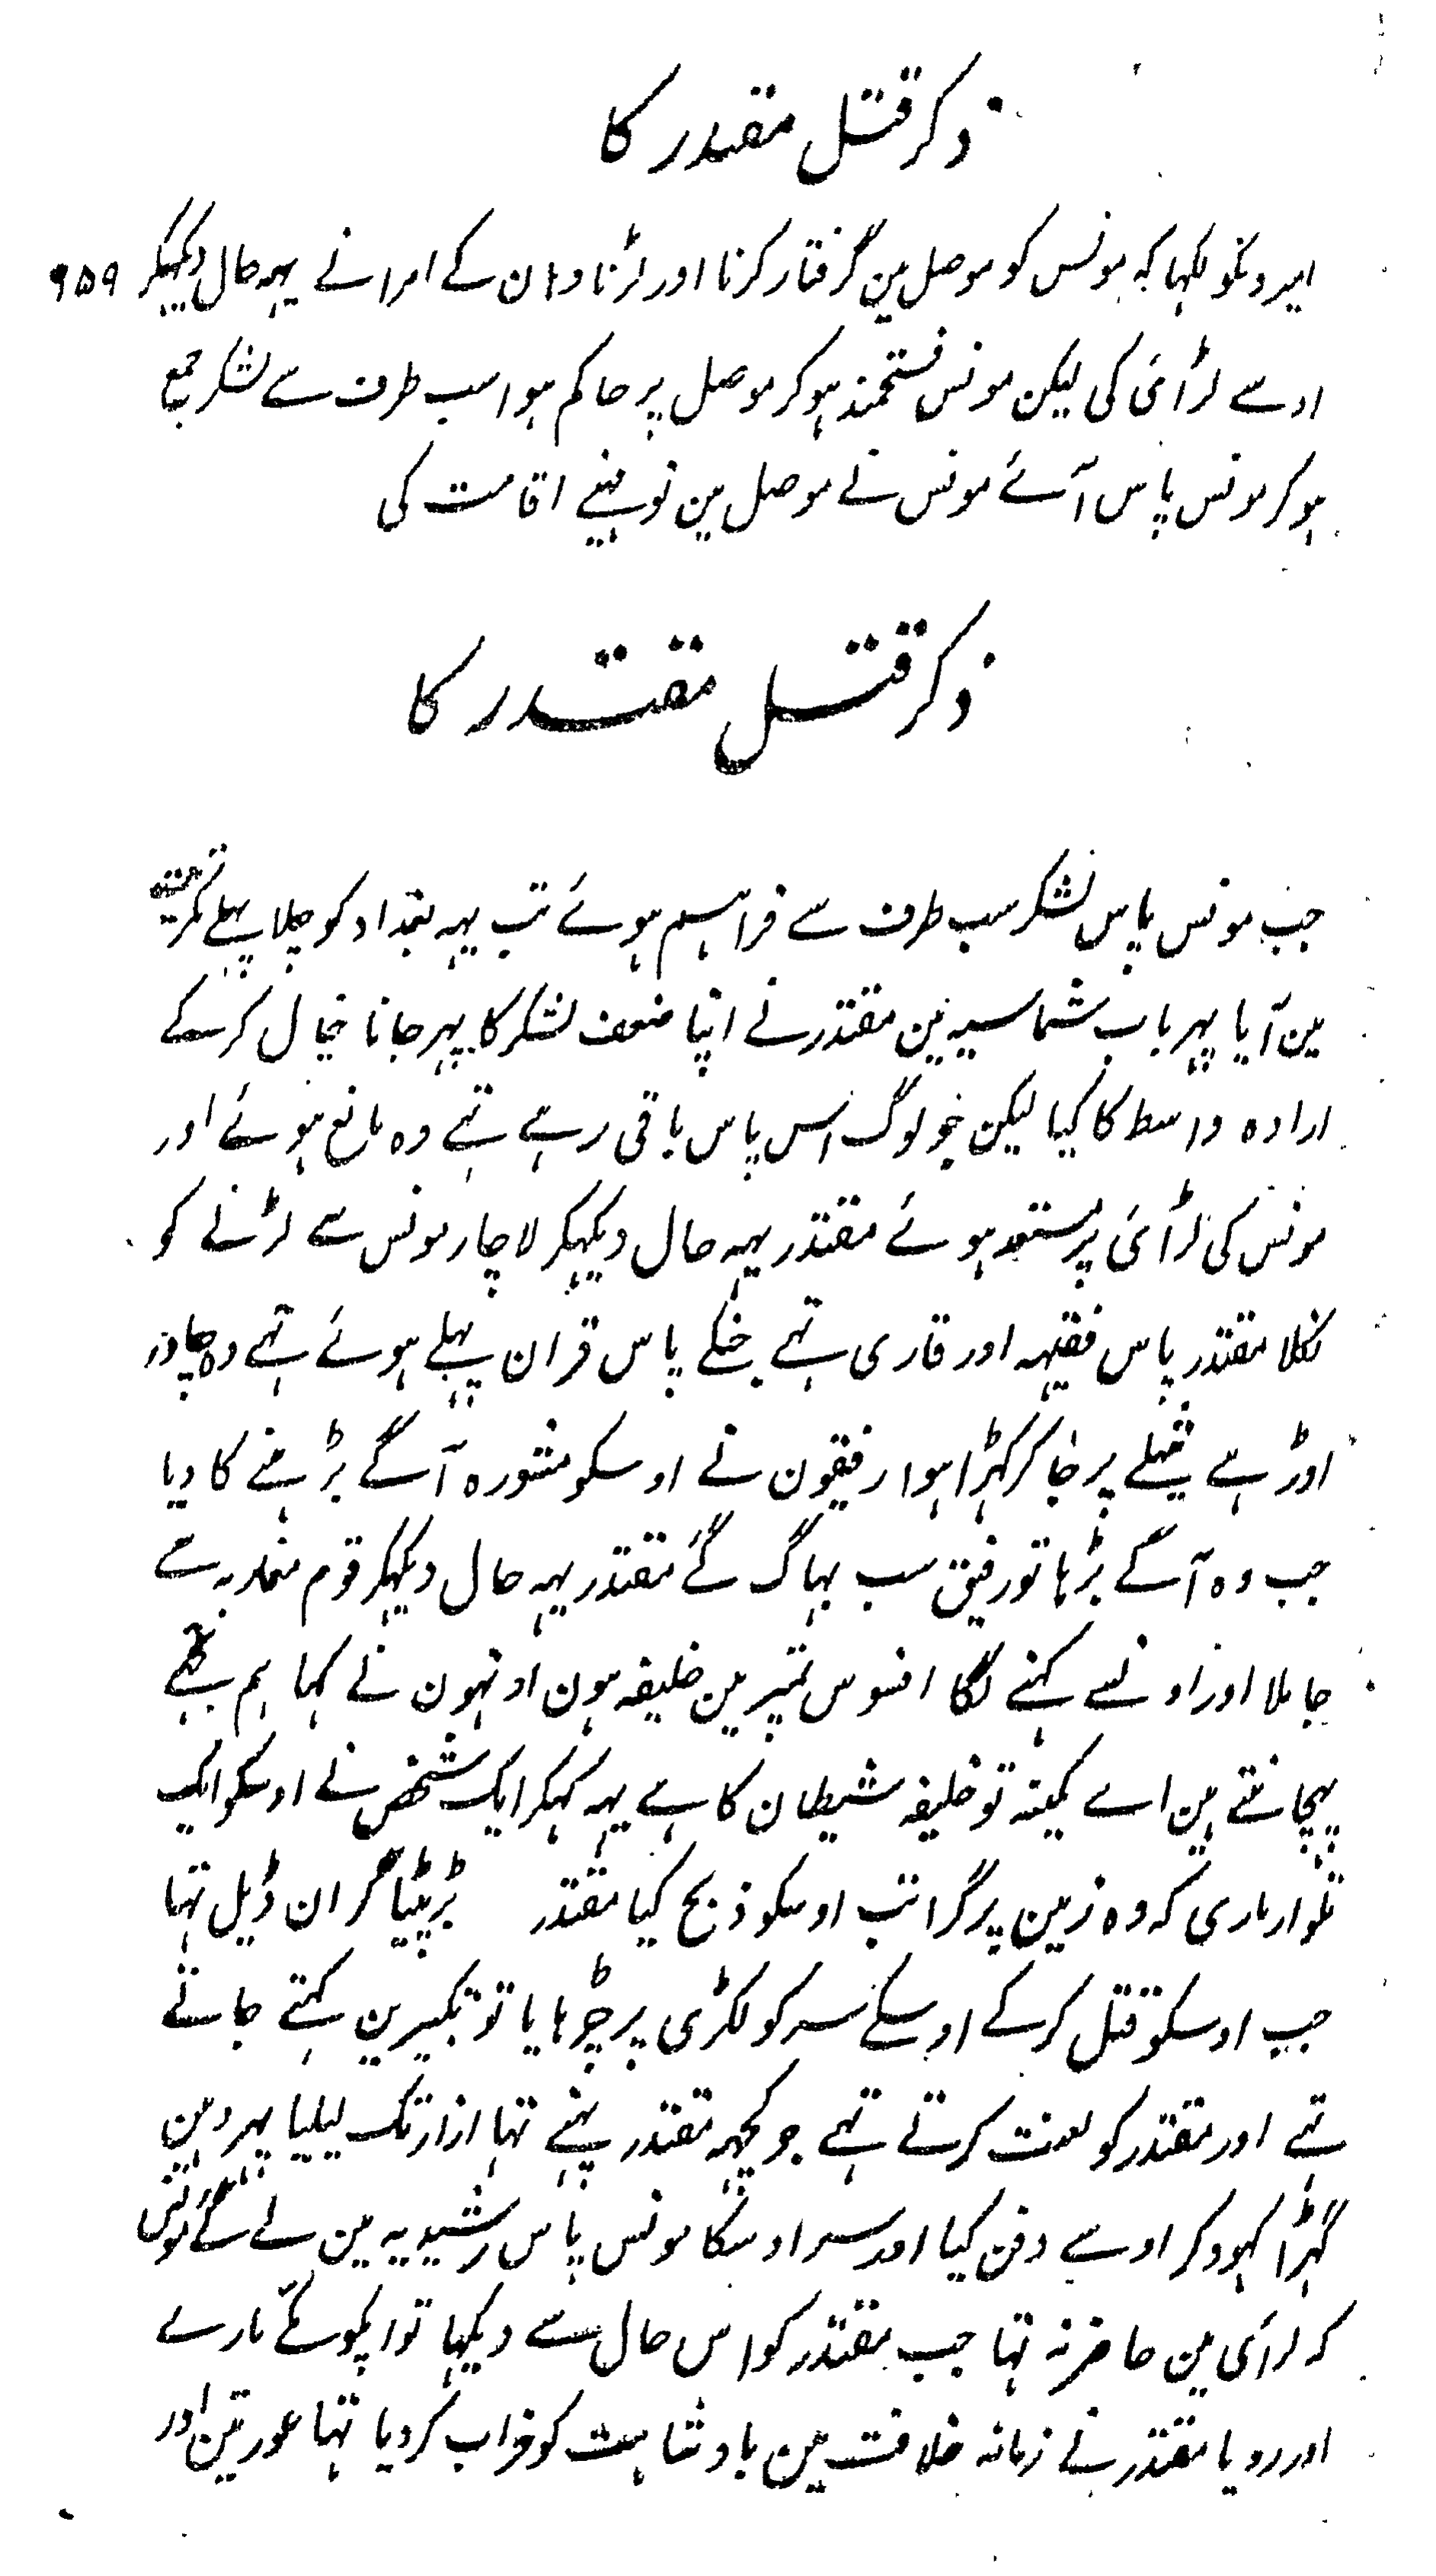 ذکر قتل مقتدر کا
امیرونکو لکہا کہ مونس کو موصل مین گرفتار کرنا اور لڑنا وہان کے امرا نے یہہ حال دیکہکر ۹۵۹
اوسے لڑائی کی لیکن مونس فتحمند ہو کر موصل پر حاکم ہوا سب طرف سے لشکر جمع
ہو کر مونس پاس آئے مونس نے موصل مین نو مہنے اقامت کی
ذکر قتل مقتدر کا
جب مونس پاس لشکر سب طرف سے فراہم ہوئے تب یہہ بغداد کو چلا پہلے تکریت
مین آیا پہر باب شماسیہ مین مقتدر نے اپنا ضعف لشکر کا پہر جانا خیال کر کے
ارادہ واسط کا کیا لیکن جو لوگ اس پاس باقی رہے تہے وہ مانع ہوئے اور
مونس کی لڑائی پر مستعد ہوئے مقتدر یہہ حال دیکہکر لاچار مونس سے لڑنے کو
نکلا مقتدر پاس فقیہہ اور قاری تہے جنکے پاس قران پہیلے ہوئے تہے وہ چادر
اوڑہے ٹیلے پر جا کر کہڑا ہوا رفیقون نے اوسکو مشورہ آگے بڑہنے کا دیا
جب وہ آگے بڑہا تو رفیق سب بہاگ گئے مقتدر یہہ حال دیکہکر قوم مغاربہ سے
جا ملا اور اونسے کہنے لگا افسوس تمپر مین خلیفہ ہون اونہون نے کہا ہم تجہے
پہچانتے ہین اے کمینہ تو خلیفہ شیطان کا ہے یہہ کہکر ایک شخص نے اوسکو ایک
تلوار ماری کہ وہ زمین پر گرا تب اوسکو ذبح کیا مقتدر بڑپیٹا گران ڈیل تہا
جب اوسکو قتل کر کے اوسکے سر کو لکڑی پر چڑہایا تو تکبیرین کہتے جاتے
تہے اور مقتدر کو لعنت کرتے تہے جو کچہہ مقتدر پہنے تہا ازار تک لیلیا پہر وہین
گہڑا کہود کر اوسے دفن کیا اور سر اوسکا مونس پاس رشیدیہ مین لے گئے مونس
کہ لڑائی مین حاضر نہ تہا جب مقتدر کو اس حال سے دیکہا تو مارے
اور رویا مقتدر نے زمانہ خلافت مین بادشاہت کو خراب کر دیا تہا عورتین اور